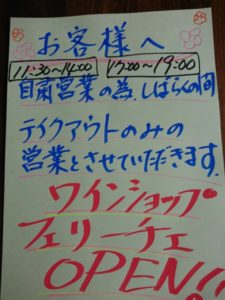 お客様へ
11:30~14:00 17:00~19:00
自粛営業の為、しばらくの間
テイクアウトのみの
営業とさせていただきます。
ワインショップ
フェリーチェ
OPEN!!